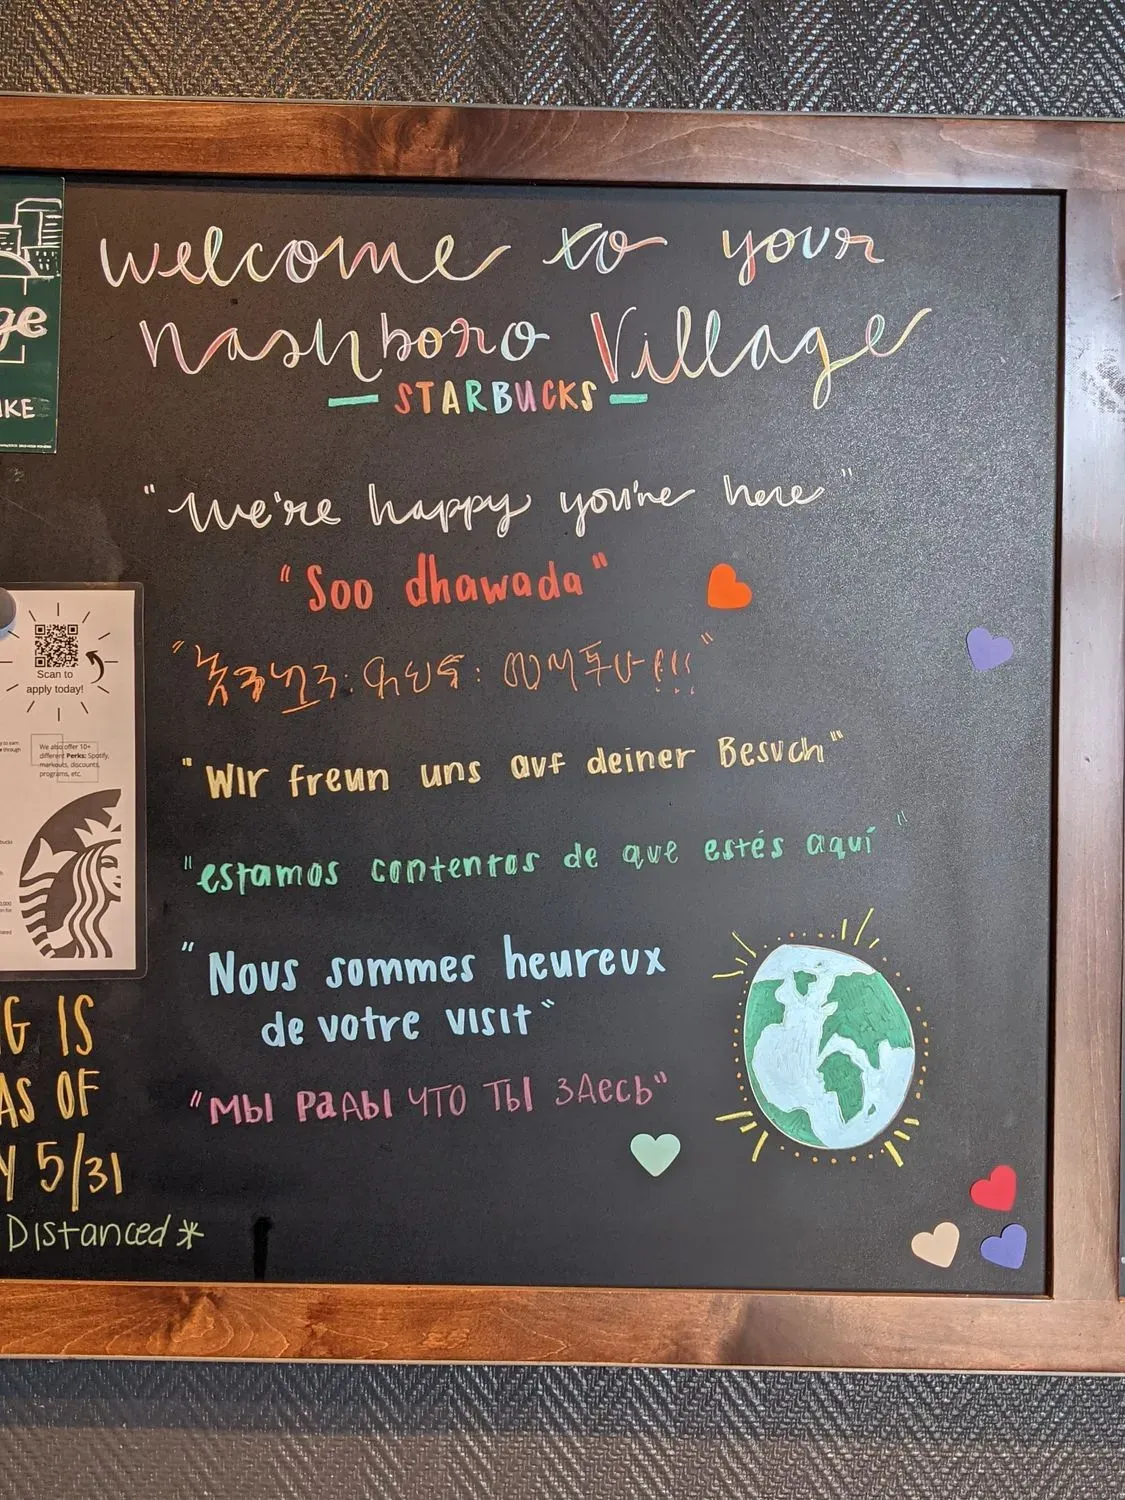 welcome to your
Nashboro Village
STARBUCKS
"We're happy you're here"
"Soo dhawada"
"Wir freun uns auf deiner Besuch"
"estamos contentos de que estés aquí"
"Nous sommes heureux
de votre visit"
"МЫ РаДЫ ЧТО ТЫ ЗДЕСЬ"
ge
IKE
Scan to
apply today!
We also offer 10+
different Perks: Spotify,
markouts, discounts,
programs, etc.
G IS
AS OF
Y 5/31
Distanced*